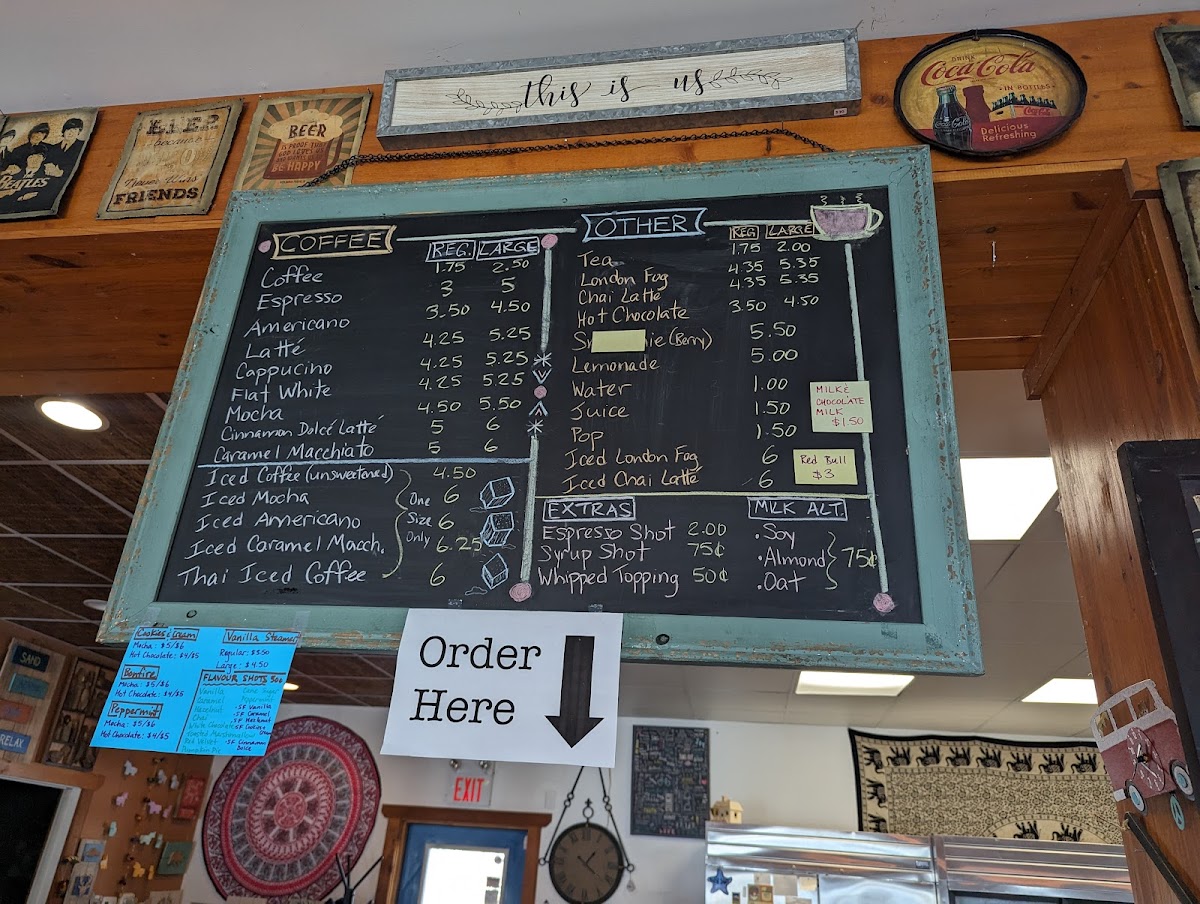 this is us
DRINK
Coca-Cola
IN BOTTLES
Delicious
Refreshing
BEATLES
LIFE
because
FRIENDS
BEER
BE HAPPY
COFFEE REG. LARGE
Coffee 1.75 2.50
Espresso 3 5
Americano 3.50 4.50
Latté 4.25 5.25
Cappucino 4.25 5.25
Flat White 4.25 5.25
Mocha 4.50 5.50
Cinnamon Dolcé Latté 5 6
Caramel Macchiato 5 6
Iced Coffee (unsweetened) 4.50
Iced Mocha 6
Iced Americano 6
Iced Caramel Macch. 6.25
Thai Iced Coffee 6
One
Size
Only
OTHER REG LARGE
Tea 1.75 2.00
London Fog 4.35 5.35
Chai Latté 4.35 5.35
Hot Chocolate 3.50 4.50
(Berry) 5.50
Lemonade 5.00
Water 1.00
Juice 1.50
Pop 1.50
Iced London Fog 6
Iced Chai Latté 6
MILK &
CHOCOLATE
MILK
$1.50
Red Bull
$3
EXTRAS
Espresso Shot 2.00
Syrup Shot 75¢
Whipped Topping 50¢
MILK ALT.
• Soy
• Almond 75¢
• Oat
Cookies & Cream
Mocha: $5/$6
Hot Chocolate: $4/$5
Bonfire
Mocha: $5/$6
Hot Chocolate: $4/$5
Peppermint
Mocha: $5/$6
Hot Chocolate: $4/$5
Vanilla Steamer
Regular: $3.50
Large: $4.50
FLAVOUR SHOTS
Vanilla
Caramel
Hazelnut
Chai
White Chocolate
Toasted Marshmallow
Red Velvet
Pumpkin Pie
Cane Sugar
Peppermint
- SF Vanilla
- SF Caramel
- SF Hazelnut
- SF Cookies
Cream
- SF Cinnamon
Dolce
Order
Here
EXIT
SAND
RELAX